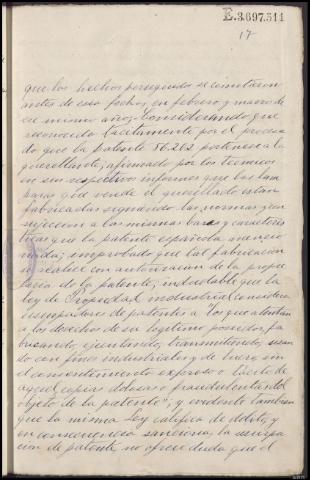 E.3.697.511
17
que los hechos perseguidos se cometieron
antes de esa fecha, en febrero y marzo de
ese mismo año; Considerando que
reconocido tacitamente por el procesa-
do, que la patente 86.262 pertenece a la
querellante; afirmado por los tecnicos
en sus respectivos informes que las lam-
paras que vende el querellado estan
fabricadas siguiendo las normas y con
sujeccion a las mismas bases y caracteris-
ticas que la patente española mencio-
nada; improbado que tal fabricacion
se realice con autorizacion de la propie-
taria de la patente; indudable que la
ley de Propiedad industrial considera
usurpadores de patentes a "los que atentan
a los derechos de su legitimo poseedor, fa-
bricando, ejecutando, transmitiendo, usan-
do con fines industriales y de lucro sin
el consentimiento expreso o tacito de
aquel copias dolosas o fraudulentas del
objeto de la patente"; y evidente tambien
que la misma Ley califica de delito, y
en consecuencia sanciona, la usurpa-
cion de patente no ofrece duda que el